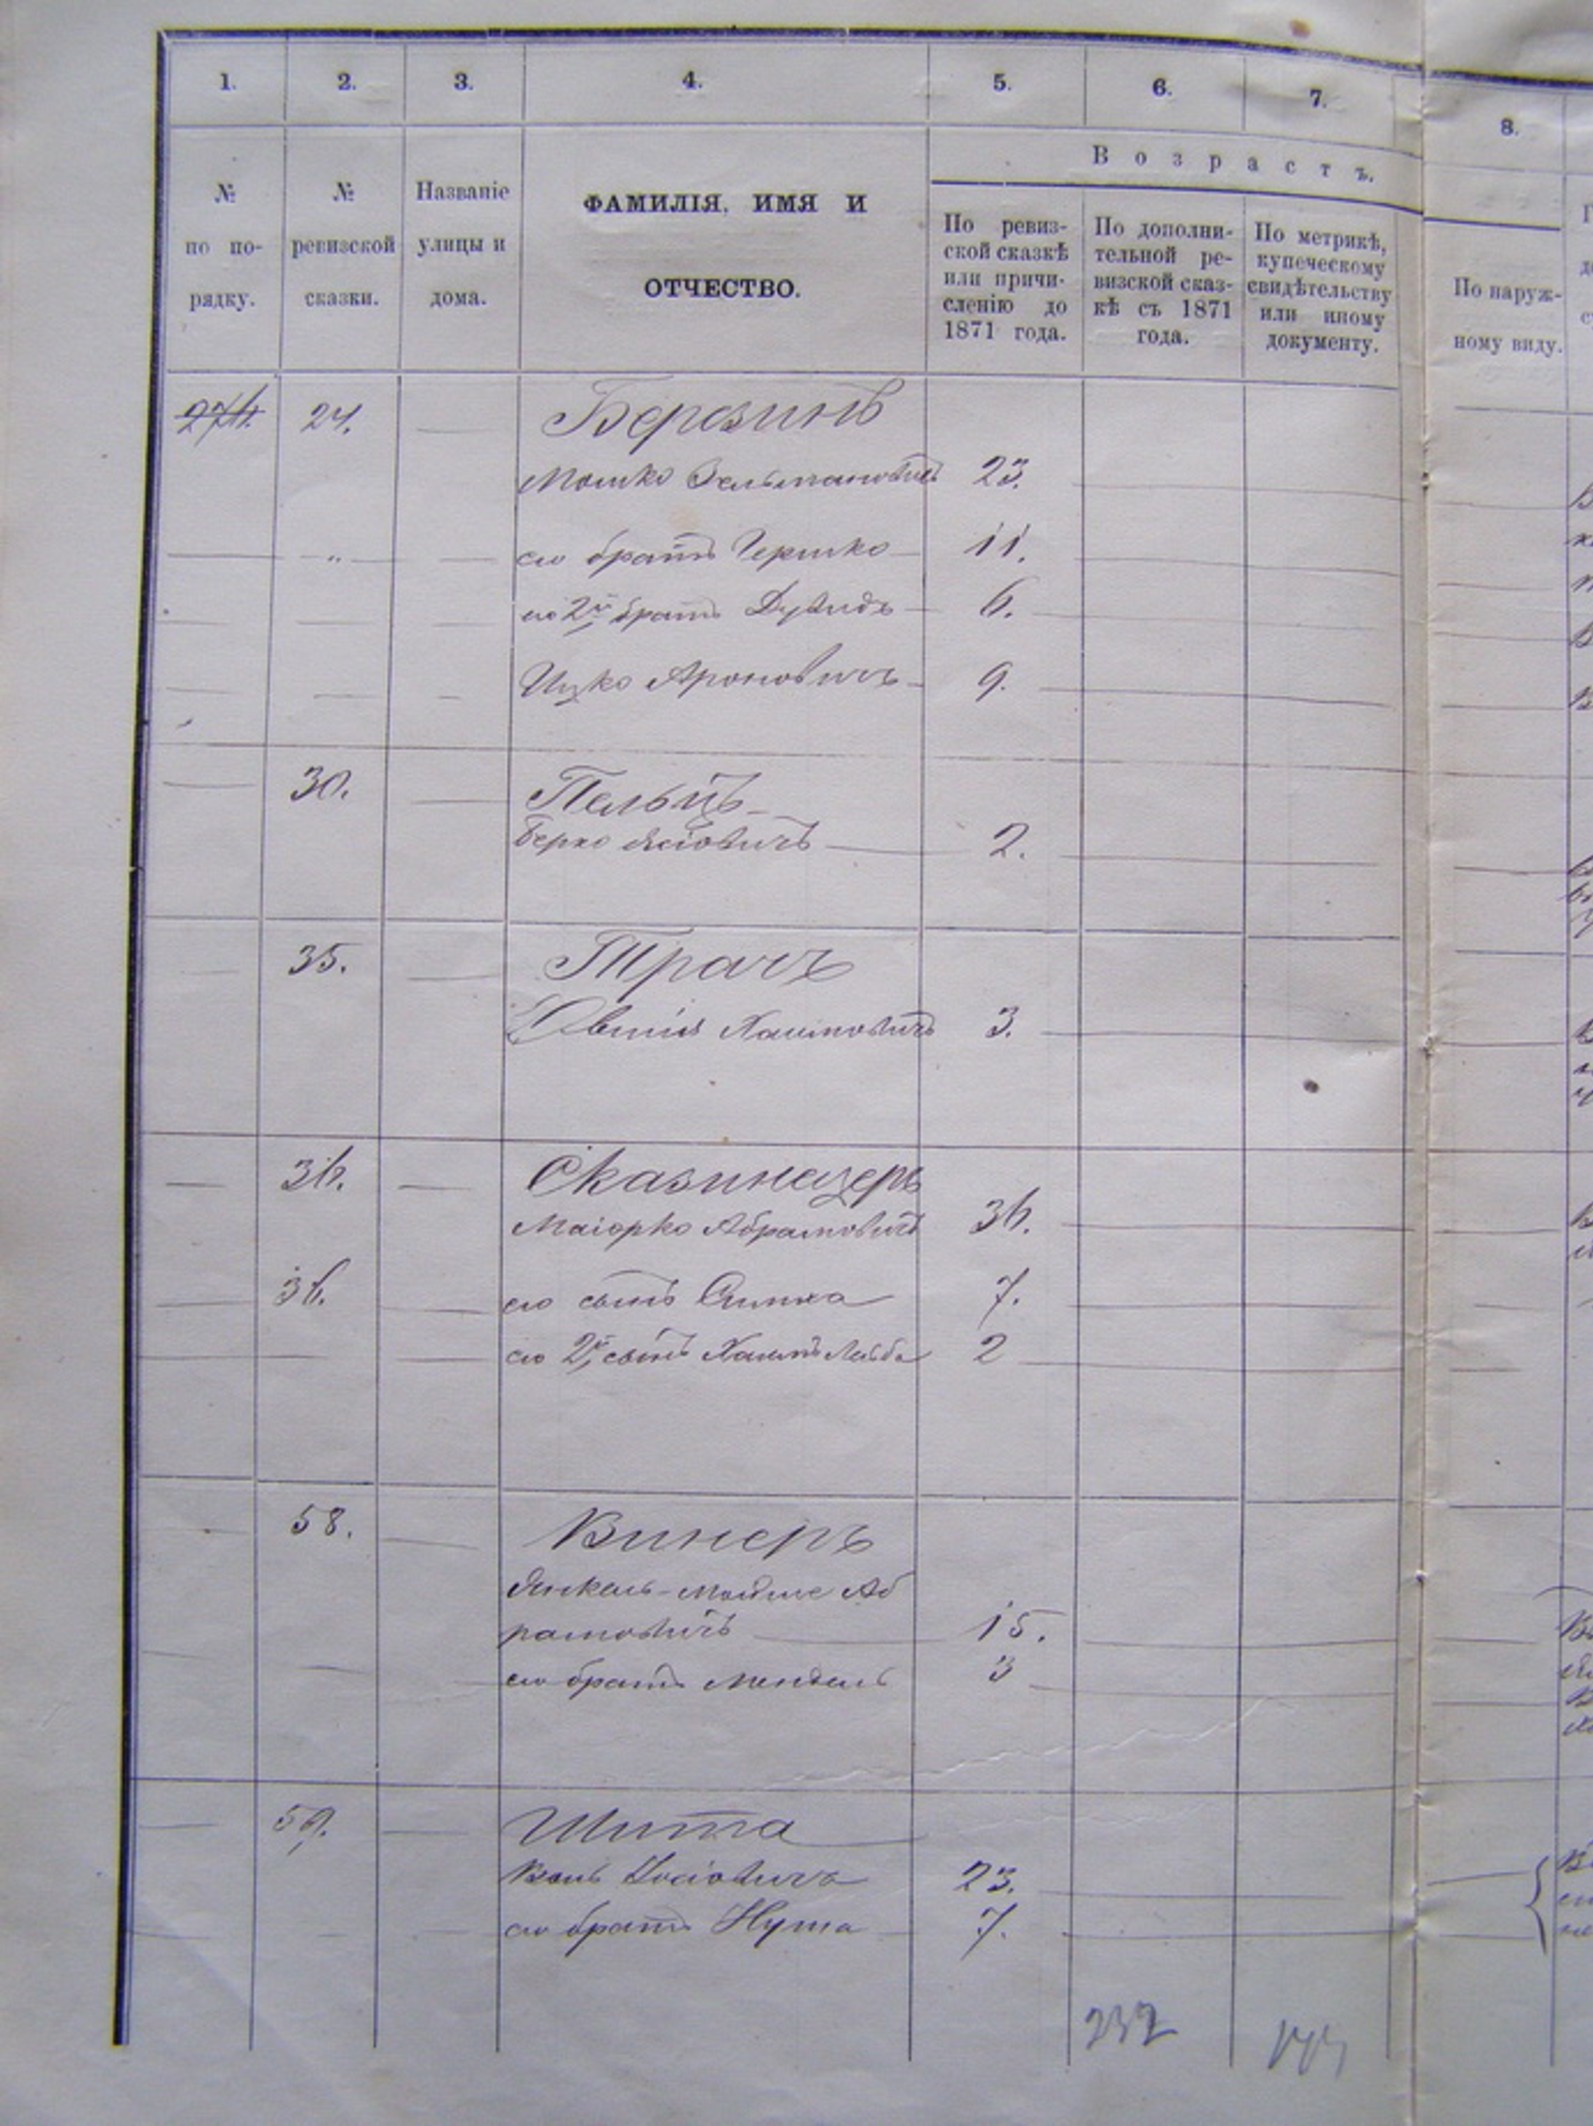 1. 2. 3. 4. 5. 6. 7. 8.
Возрастъ.
№ по по-
рядку.
№ ревизской
сказки.
Названіе
улицы и
дома.
ФАМИЛІЯ, ИМЯ И
ОТЧЕСТВО.
По ревиз-
ской сказкѣ
или причи-
сленію до
1871 года.
По дополни-
тельной ре-
визской сказ-
кѣ съ 1871
года.
По метрикѣ,
купеческому
свидѣтельству
или иному
документу.
По наруж-
ному виду.
24. Березинъ
Мошко Зельмановичъ 23.
его братъ Гершко 11.
его 2й братъ Дувидъ 6.
Ицко Ароновичъ 9.
30. Пельцъ
Берко 2.
35. Трачъ
Хаимовичъ 3.
36.
Маіорко Абрамовичъ 36.
36. его сынъ Симха 7.
его 2й сынъ Хаимъ Лейба 2
58. Винеръ
Янкель-Мойше Аб
рамовичъ 15.
его братъ Мендель 3
59. Шита
Іосіовичъ 23.
его братъ Нута 7.
232